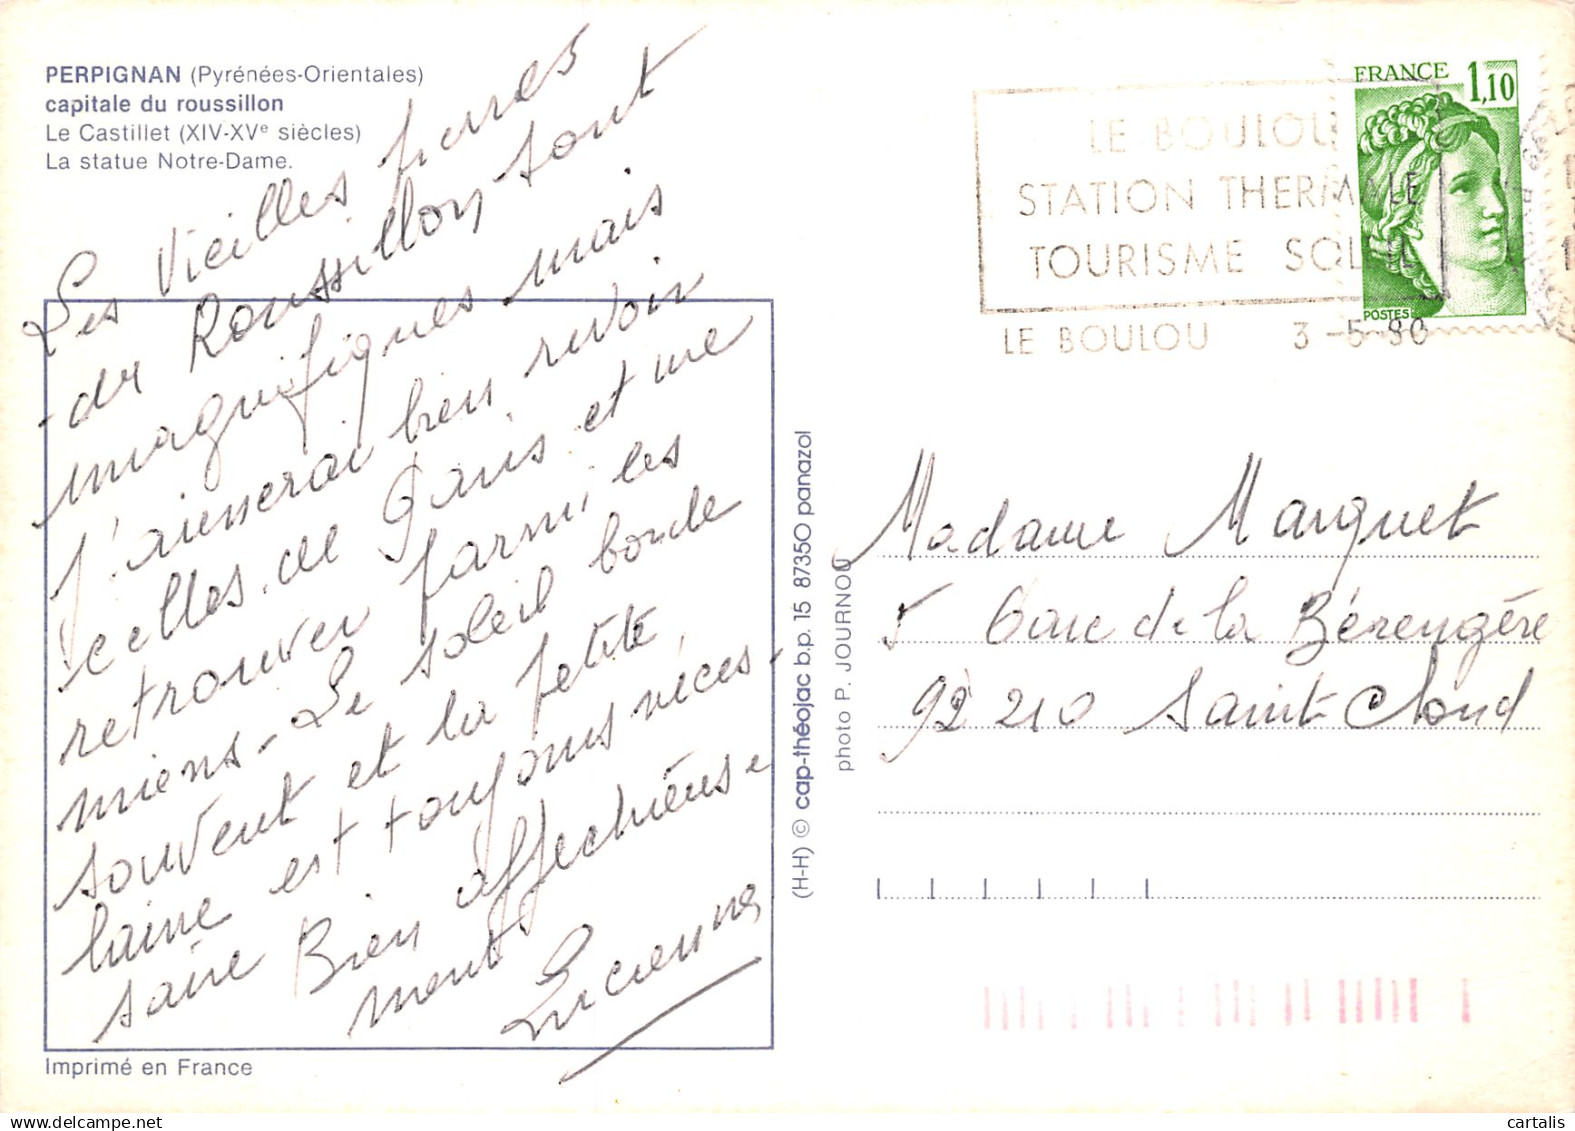 PERPIGNAN (Pyrénées-Orientales)
capitale du roussillon
Le Castillet (XIV-XVe siècles)
La statue Notre-Dame.
Les Vieilles pierres
-du Roussillon sont
magnifiques mais
j'aimerai bien revoir
celles de Paris et me
retrouver parmi les
miens - Le soleil boude
souvent et la petite
laine est toujours néces-
saire Bien affectueuse
ment
Lucienne
Imprimé en France
(H-H) © cap-théojac b.p. 15 87350 panazol
photo P. JOURNOU
LE BOULOU
STATION THERMALE
TOURISME SOLEIL
LE BOULOU 3-5-80
FRANCE 1,10
POSTES
Madame Marquet
5 Parc de la Bérengère
92210 Saint-Cloud
cartalis